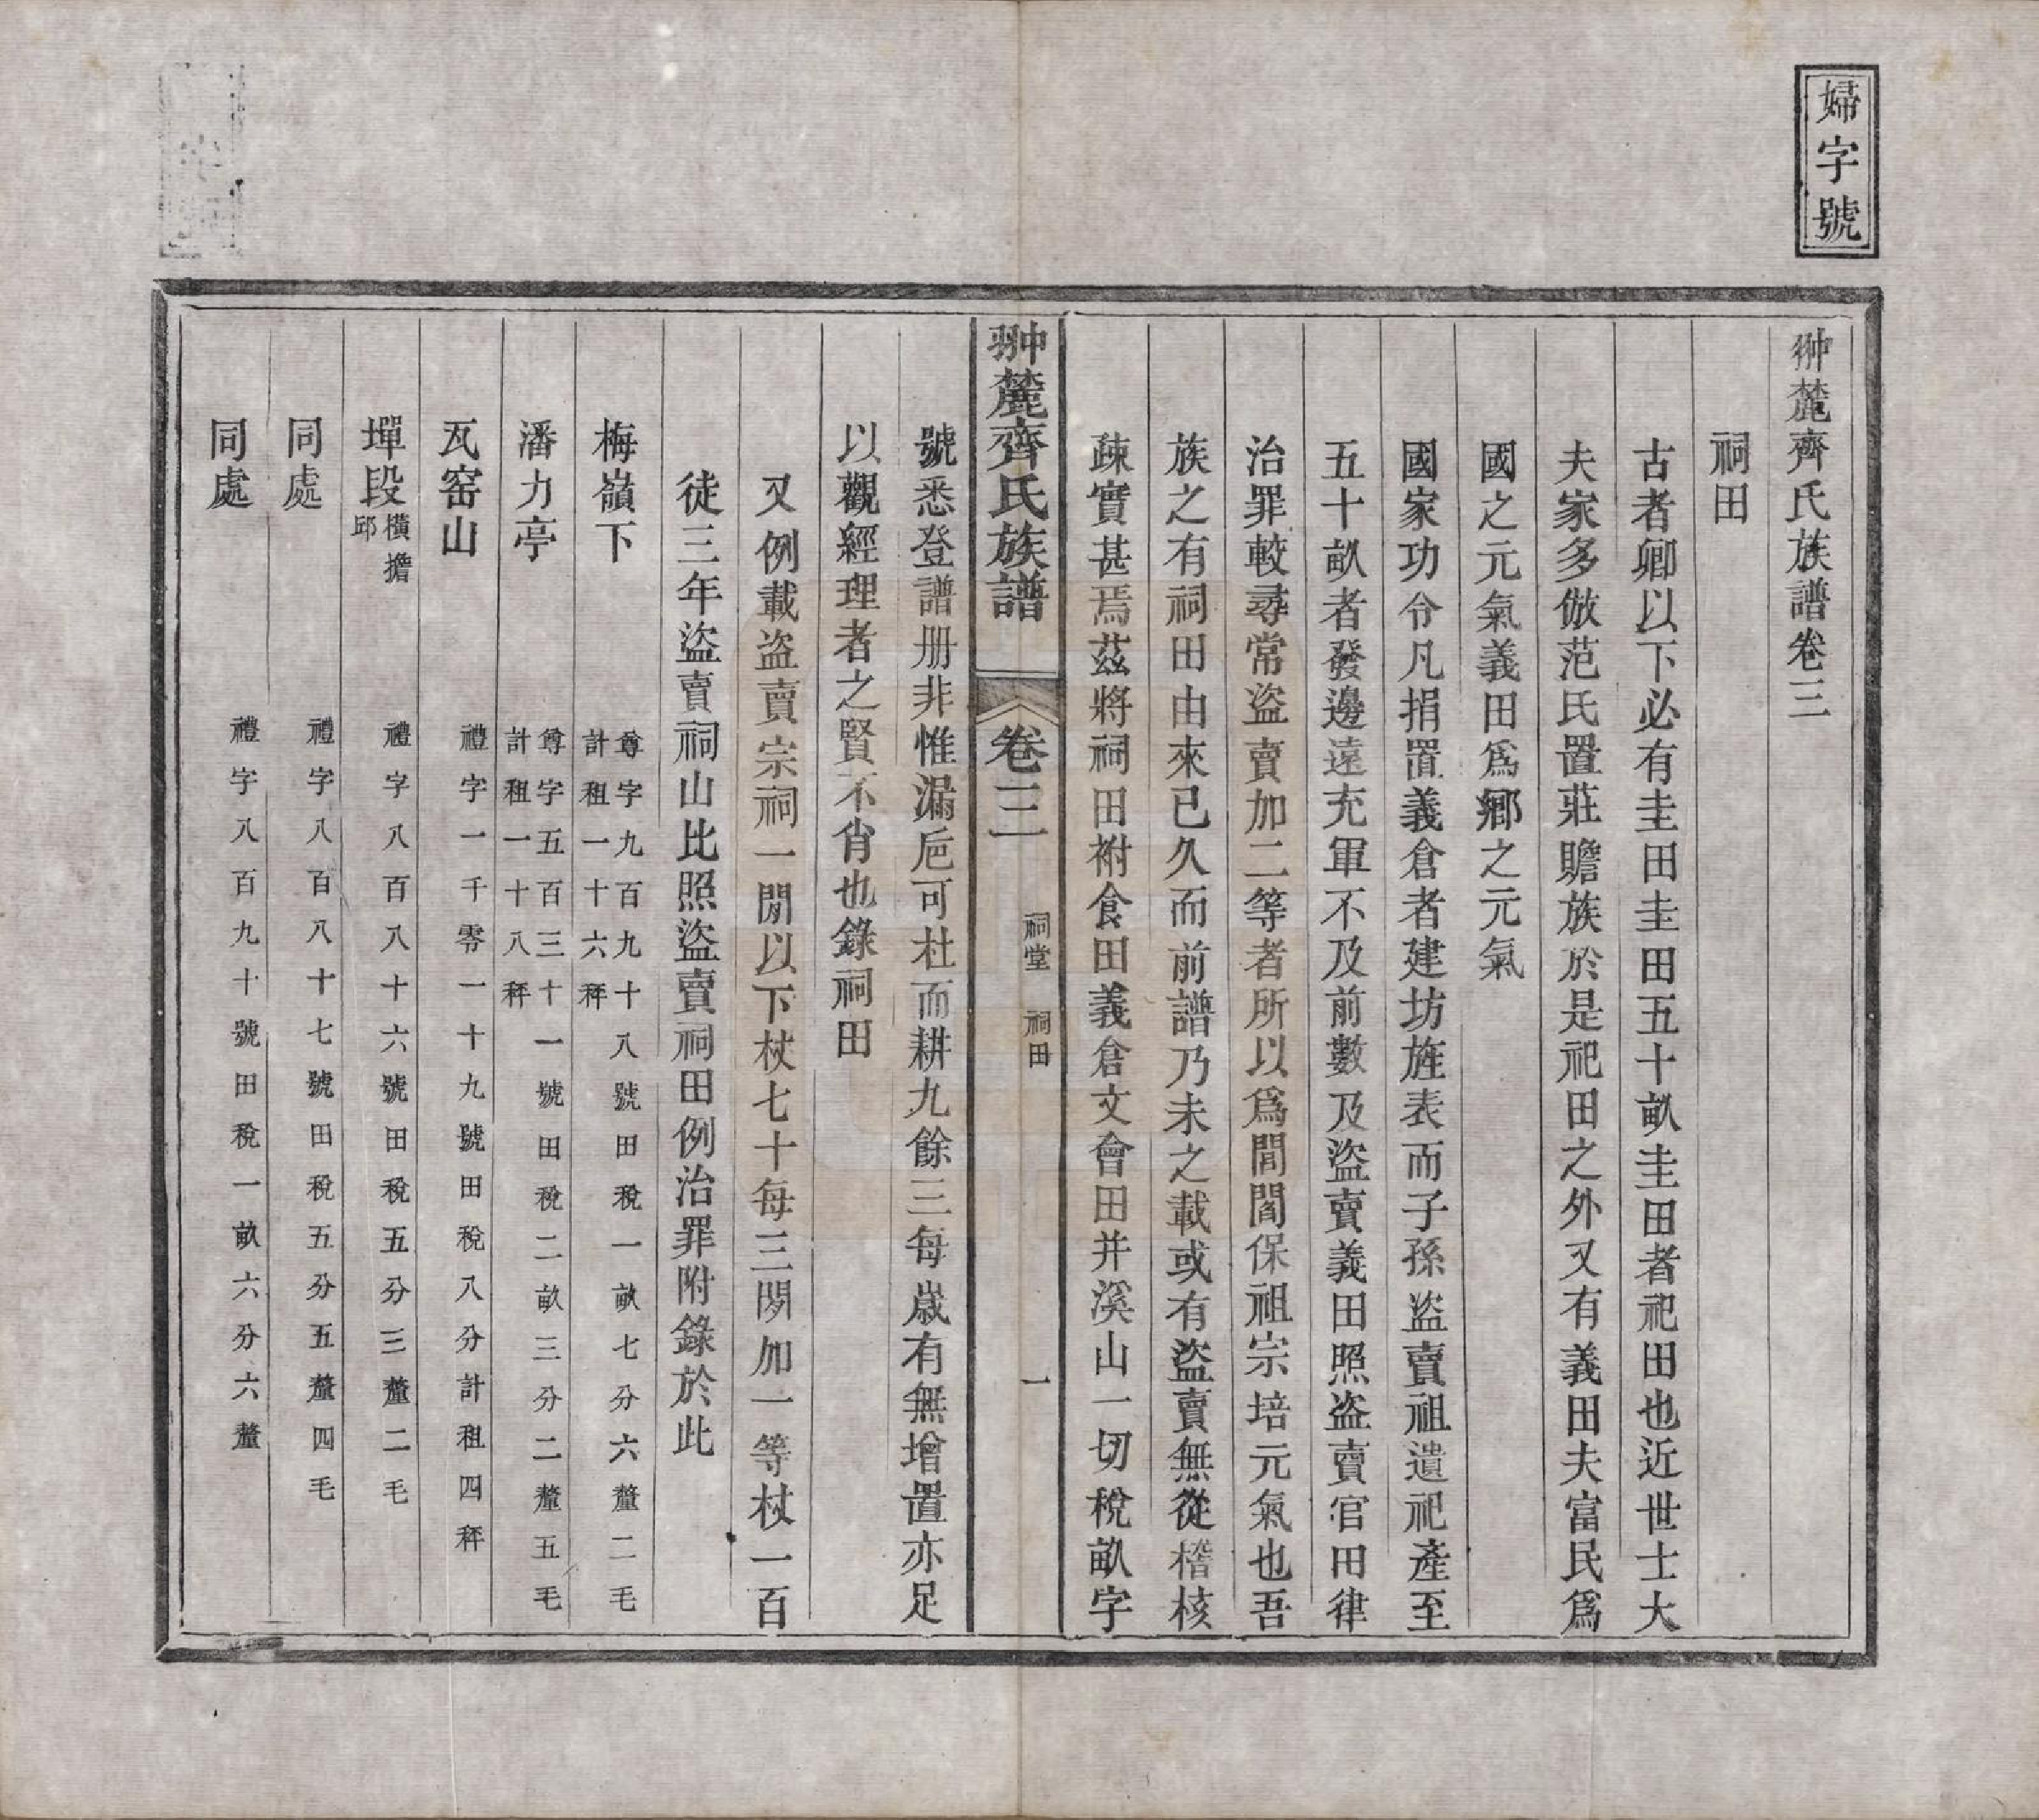 婦字號
翀麓齊氏族譜卷三
祠田
古者卿以下必有圭田圭田五十畝圭田者祀田也近世士大
夫家多倣范氏置莊贍族於是祀田之外又有義田夫富民爲
國之元氣義田爲鄉之元氣
國家功令凡捐置義倉者建坊旌表而子孫盜賣祖遺祀產至
五十畝者發邊遠充軍不及前數及盜賣義田照盜賣官田律
治罪較尋常盜賣加二等者所以爲閭閻保祖宗培元氣也吾
族之有祠田由來已久而前譜乃未之載或有盜賣無從稽核
疎實甚焉茲將祠田祔食田義倉文會田并溪山一切稅畝字
翀麓齊氏族譜 卷三 祠堂 祠田 一
號悉登譜册非惟漏巵可杜而耕九餘三每歲有無增置亦足
以觀經理者之賢不肖也錄祠田
又例載盜賣宗祠一間以下杖七十每三間加一等杖一百
徒三年盜賣祠山比照盜賣祠田例治罪附錄於此
梅嶺下 尊字九百九十八號田稅一畝七分六釐二毛
計租一十六秤
潘力亭 尊字五百三十一號田稅二畝三分二釐五毛
計租一十八秤
瓦窑山 禮字一千零一十九號田稅八分計租四秤
墠段橫擔邱 禮字八百八十六號田稅五分三釐二毛
同處 禮字八百八十七號田稅五分五釐四毛
同處 禮字八百九十號田稅一畝六分六釐